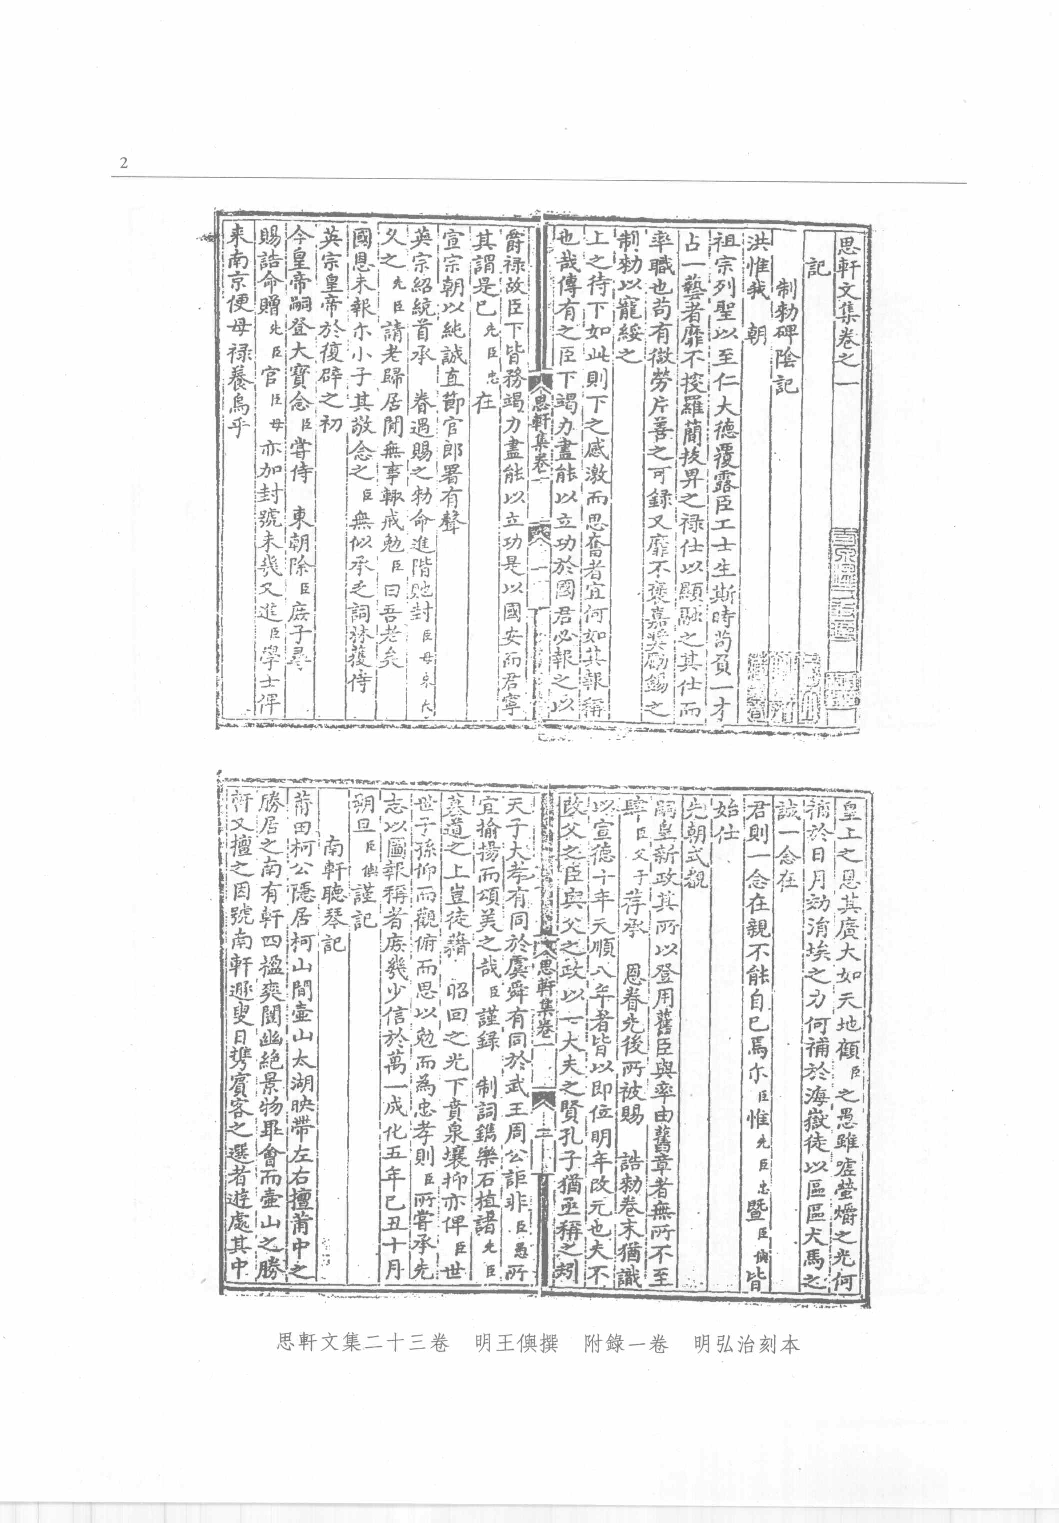 2
思軒文集卷之一
記
制勑碑陰記
洪惟我　朝
祖宗列聖以至仁大德覆露臣工士生斯時苟負一才
占一藝者靡不搜羅簡拔畀之祿仕以顯融之其仕而
率職也苟有微勞片善之可録又靡不褒嘉奬勵錫之
制勑以寵綏之
上之待下如此則下之感激而思奮者宜何如其報稱
也哉傳有之臣下竭力盡能以立功於國君必報之以
思軒集卷一
一
爵祿故臣下皆務竭力盡能以立功是以國安而君寧
其謂是已先臣忠在
宣宗朝以純誠直節官郎署有聲
英宗紹統首承　眷遇賜之勑命進階貤封臣母宋氏
久之先臣請老歸居閒無事輙戒勉臣曰吾老矣
國恩未報尓小子其敬念之臣無似承乏詞林獲侍
英宗皇帝於復辟之初
今皇帝嗣登大寶念臣嘗侍　東朝除臣庶子尋
賜誥命贈先臣官臣母亦加封號未幾又進臣學士俾
来南京便母祿養烏乎
皇上之恩其廣大如天地顧臣之愚雖嘘螢爝之光何
禆於日月効涓埃之力何補於海嶽徒以區區犬馬之
誠一念在
君則一念在親不能自已焉尓臣惟先臣忠暨臣㒜皆
始仕
先朝式覩
嗣皇新政其所以登用舊臣與率由舊章者無所不至
肆臣父子荐承　恩眷先後所被賜　誥勑卷末猶識
以宣德十年天順八年者皆以即位明年改元也夫不
改父之臣與父之政以一大夫之賢孔子猶亟稱之矧
思軒集卷一
二
天子大孝有同於虞舜有同於武王周公詎非臣愚所
宜揄揚而頌美之哉臣謹録　制詞鐫樂石植諸先臣
墓道之上豈徒藉　昭回之光下賁泉壤抑亦俾臣世
世子孫仰而觀俯而思以勉而為忠孝則臣所嘗承先
志以圖報稱者庶幾少信於萬一成化五年己丑十月
朔旦臣㒜謹記
南軒聽琴記
莆田柯公隱居柯山間壷山太湖映帶左右擅莆中之
勝居之南有軒四楹爽闓幽絶景物畢會而壷山之勝
軒又擅之因號南軒遯叟日擕賓客之選者遊處其中
思軒文集二十三卷　明王㒜撰　附錄一卷　明弘治刻本